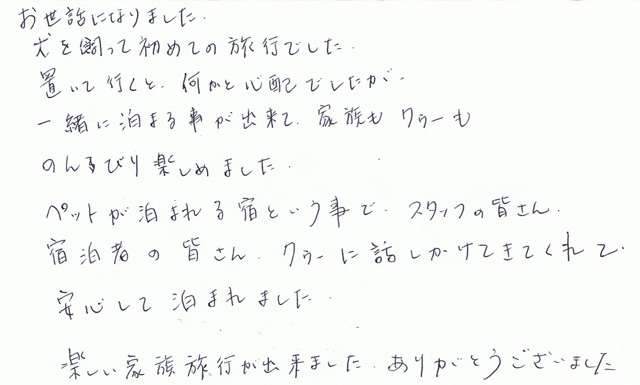 お世話になりました.
犬を飼って初めての旅行でした.
置いて行くと、何かと心配でしたが、
一緒に泊まる事が出来て、家族もクゥーも
のんるびり楽しめました.
ペットが泊まれる宿という事で、スタッフの皆さん、
宿泊者の皆さん、クゥーに話しかけてきてくれて、
安心して泊まれました.
楽しい家族旅行が出来ました.ありがとうございました